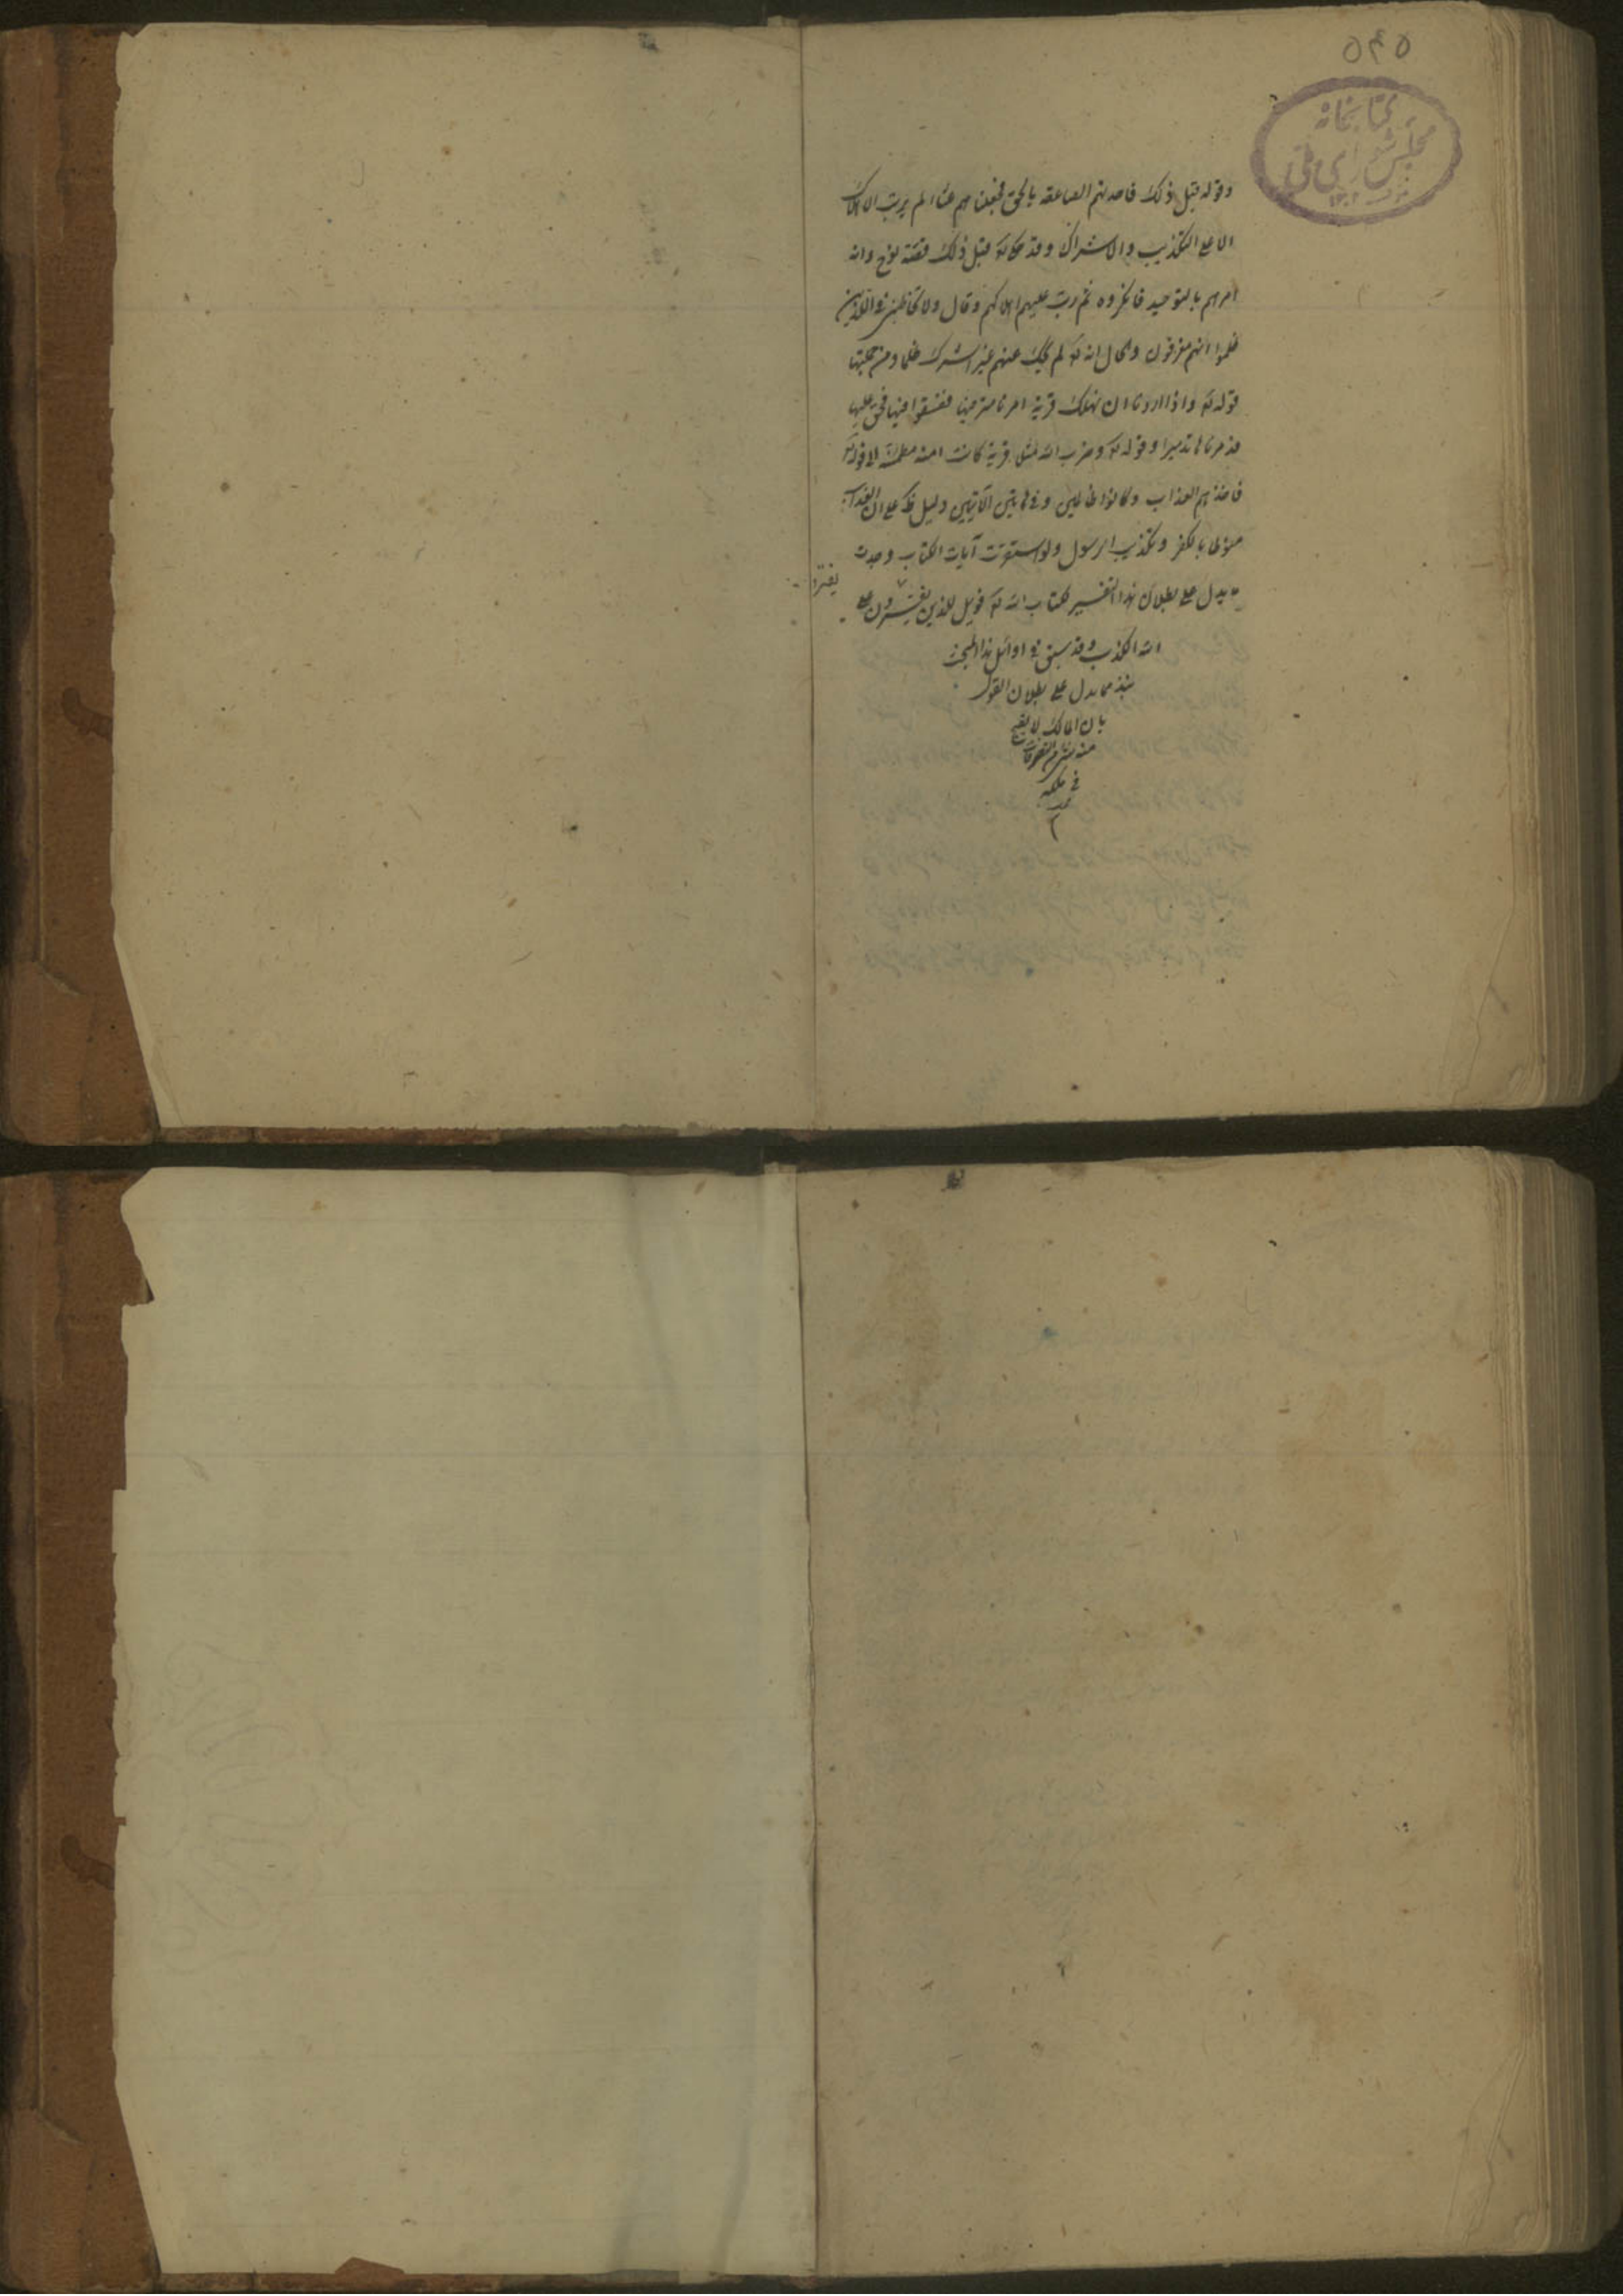 ٥٤٥
كتابخانه
مجلس شورای ملی
وقوله قبل ذلك فاخذتهم الصاعقة بالحق فجعلناهم غثاء لم يرتب الاهلاك
الا على التكذيب والاشراك وقد حكى له قبل ذلك قصة نوح وانه
امرهم بالتوحيد فانكروه ثم رتب عليهم اهلاكهم وقال ولا تخاطبنى فى الذين
ظلموا انهم مغرقون والحال انه تع لم يحك عنهم غير الشرك ظلما ومن جملتها
قوله تع واذا اردنا ان نهلك قرية امرنا مترفيها ففسقوا فيها فحق عليها
فدمرناها تدميرا وقوله تع وضرب الله مثلا قرية كانت امنة مطمئنة الى قوله تع
فاخذهم العذاب وكانوا ظالمين وفى هاتين الآيتين دليل على ان العذاب
منوط بالكفر وتكذيب الرسول ولو استقريت آيات الكتاب وجدت
ما يدل على بطلان هذا التفسير لكتاب الله تع فويل للذين يفترون على
يفترو
الله الكذب وقد سبق فى اوائل هذا المبحث
نبذ مما يدل على بطلان القول
بان المالك لا يقبح
منه التصرفات
فى ملكه